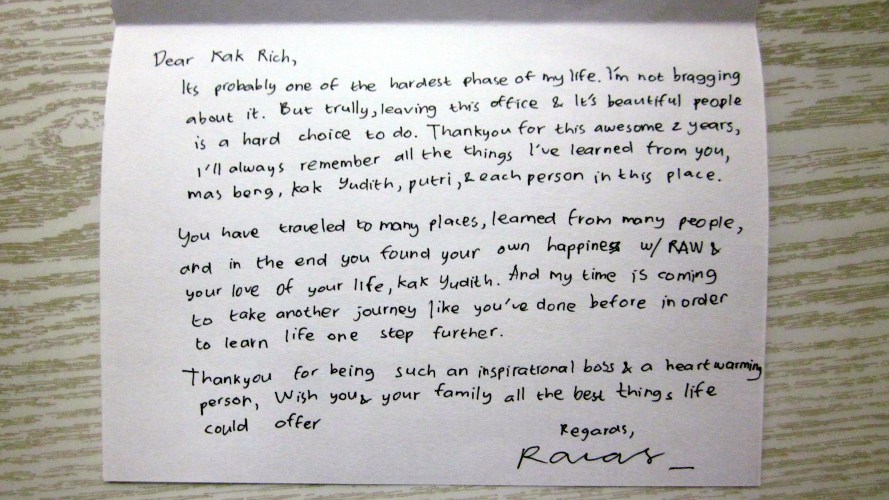 Dear Kak Rich,
Its probably one of the hardest phase of my life. I'm not bragging
about it. But trully, leaving this office & It's beautiful people
is a hard choice to do. Thankyou for this awesome 2 years,
I'll always remember all the things I've learned from you,
mas beng, kak Yudith, putri, & each person in this place.
You have traveled to many places, learned from many people,
and in the end you found your own happines w/ RAW &
your love of your life, kak Yudith. And my time is coming
to take another journey like you've done before in order
to learn life one step further.
Thankyou for being such an inspirational boss & a heartwarming
person, Wish you & your family all the best things life
could offer
Regards,